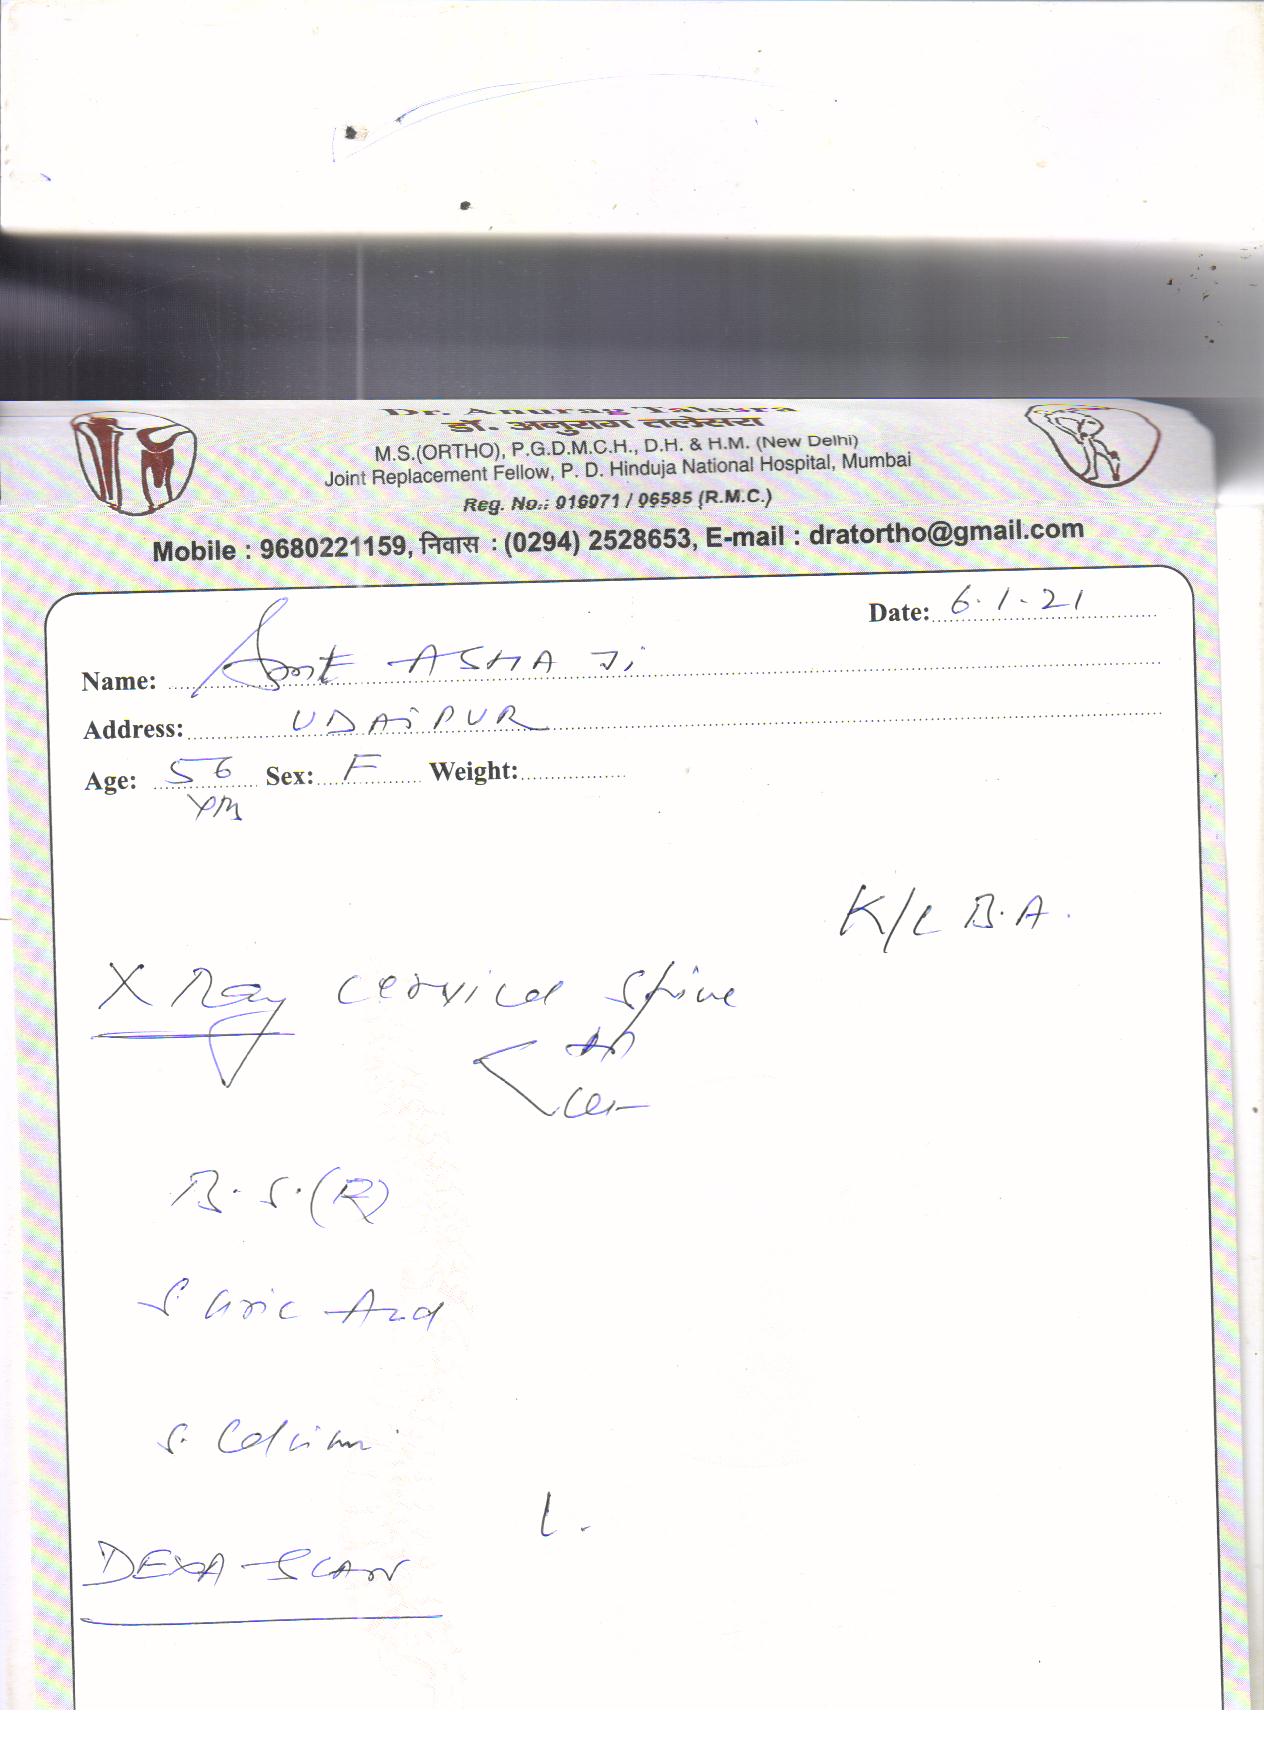 Dr. Anurag Talesra
डॉ. अनुराग तलेसरा
M.S.(ORTHO), P.G.D.M.C.H., D.H. & H.M. (New Delhi)
Joint Replacement Fellow, P. D. Hinduja National Hospital, Mumbai
Reg. No.: 016071 / 06585 (R.M.C.)
Mobile : 9680221159, निवास : (0294) 2528653, E-mail : dratortho@gmail.com
Date: 6.1.21
Name: Smt ASHA Ji
Address: UDAIPUR
Age: 56 Sex: F Weight:
K/C B.A.
X Ray cervical spine
B.S.(R)
S. Uric Acid
S. Calcium
DEXA-SCAN